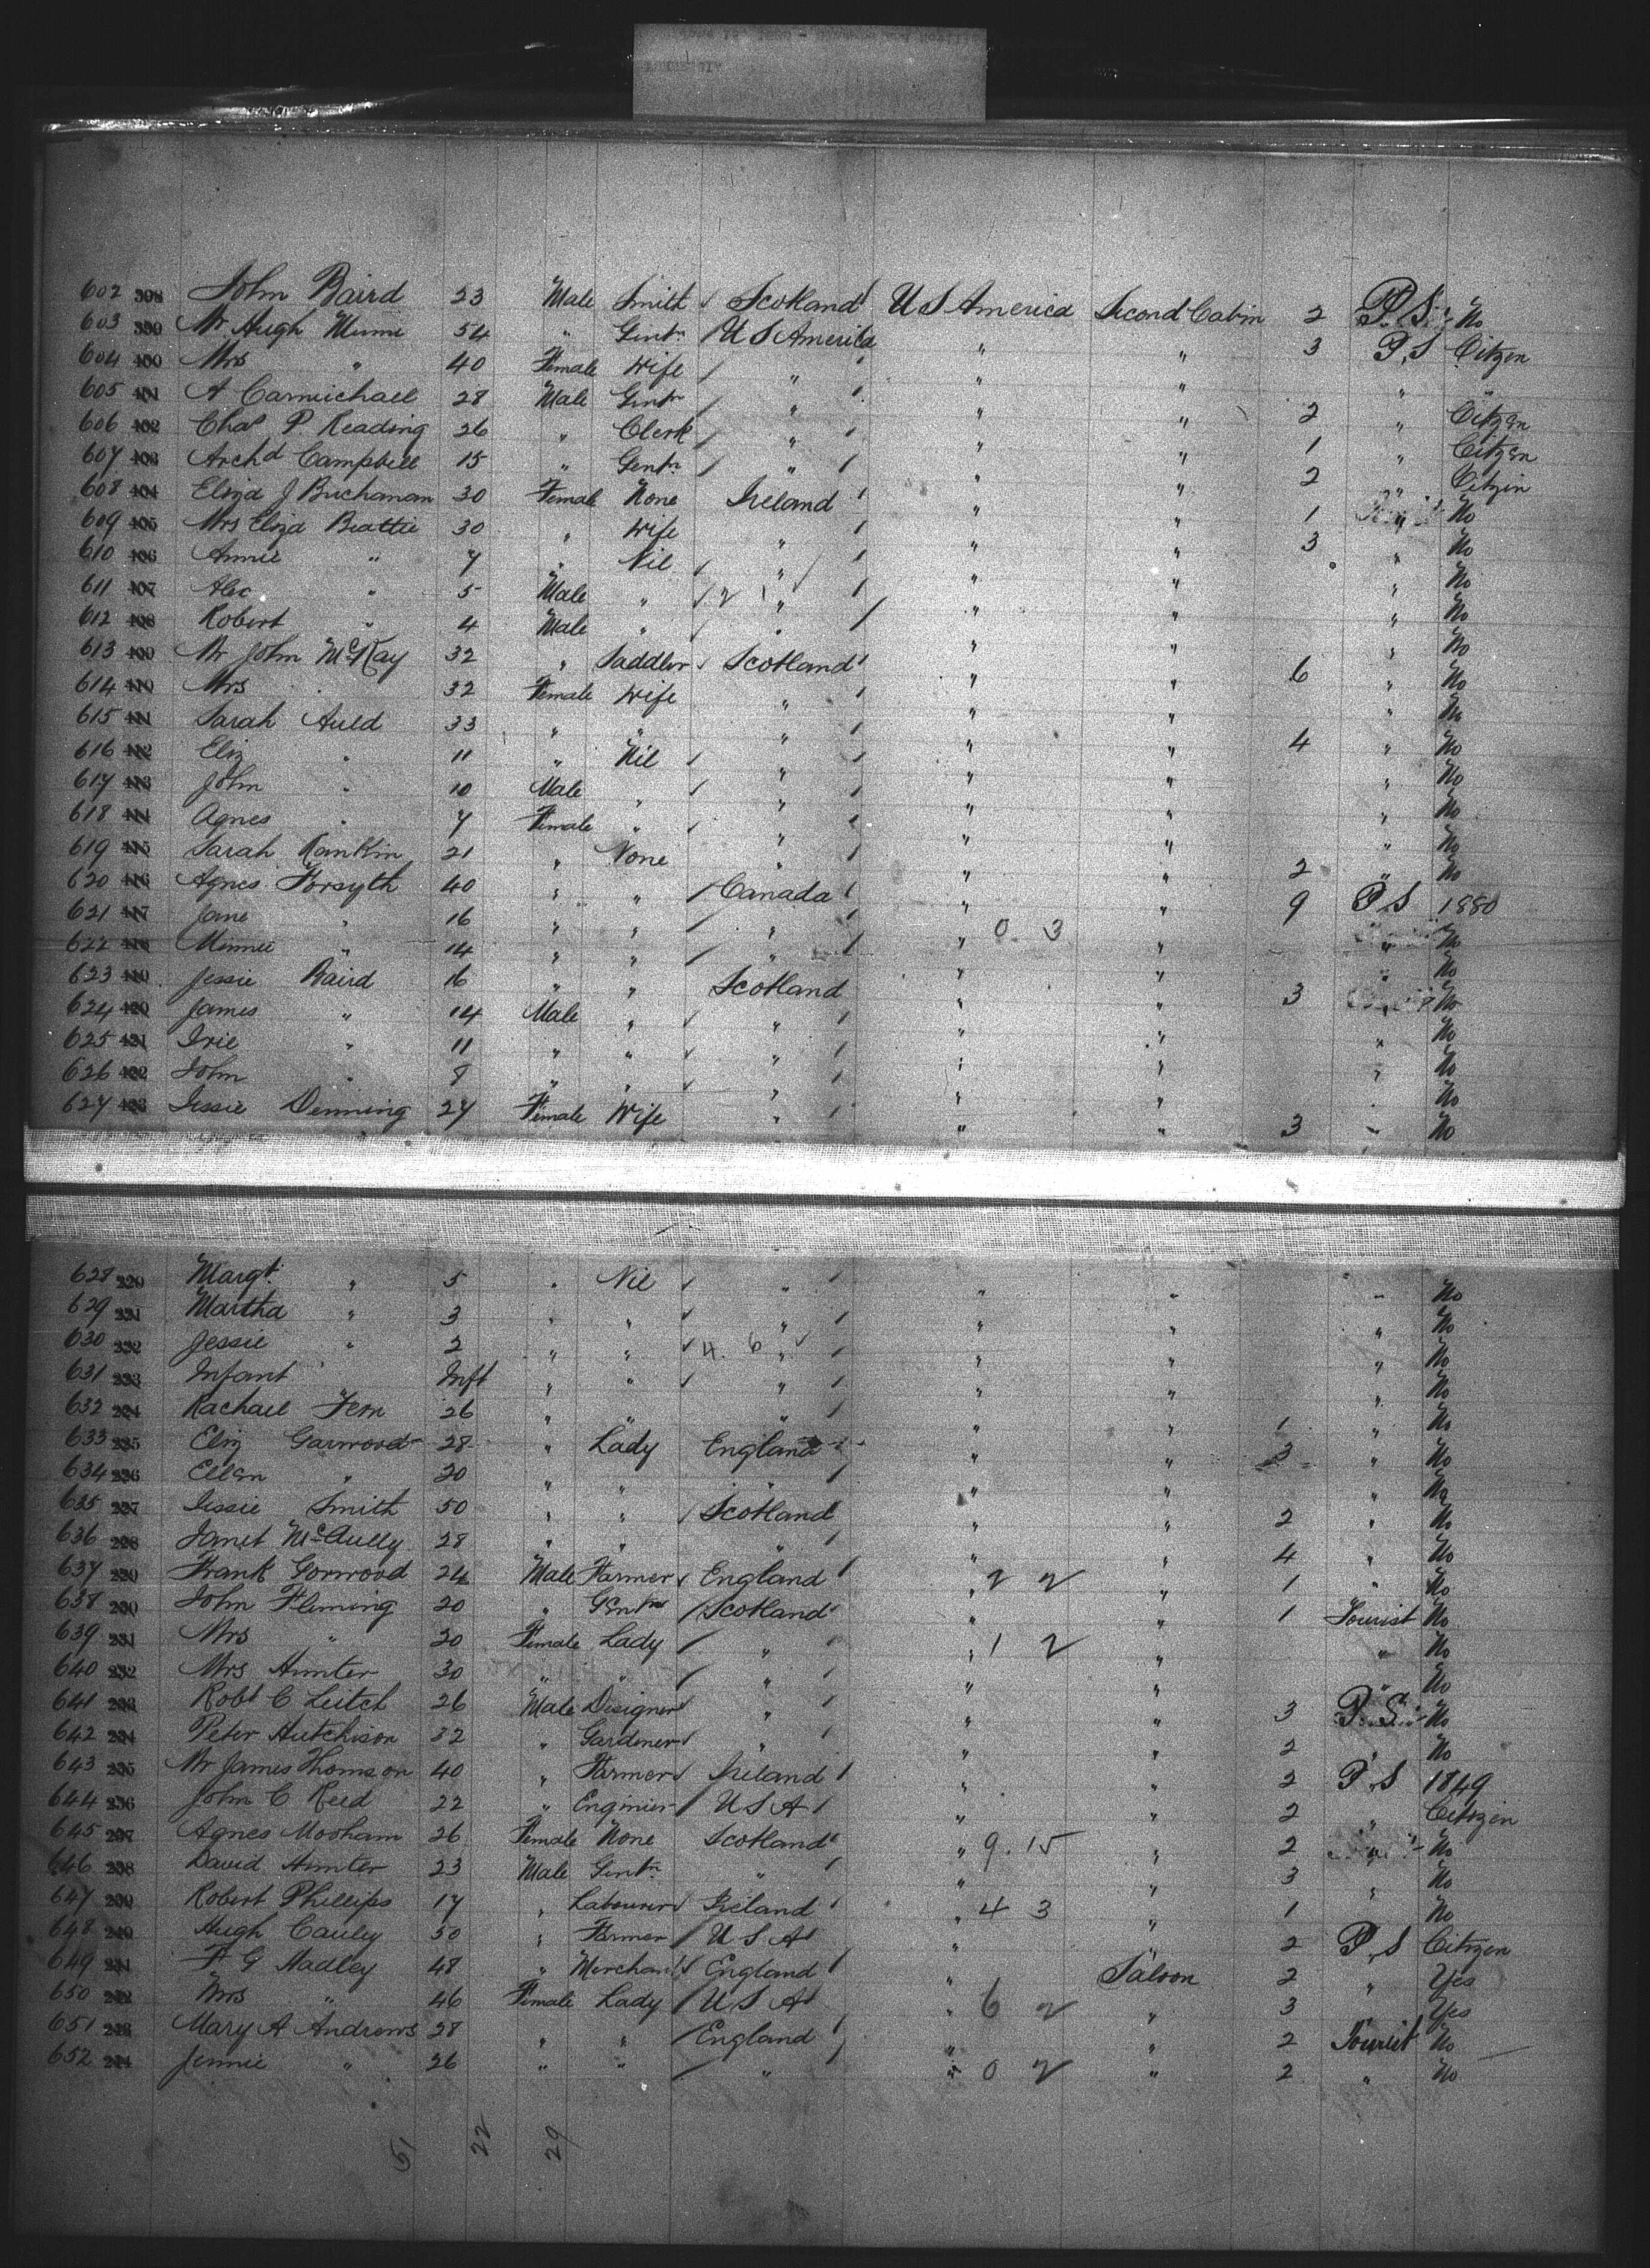 602 398 John Baird 23 Male Smith ✓ Scotland / U S America Second Cabin 2 P. S. No
603 399 Mr Hugh 54 " Gentn / U S America " " 3 P. S Citzen
604 400 Mrs " 40 Female Wife / " / " " " "
605 401 A Carmichael 28 Male Gentn / " / " " 2 " Citzen
606 402 Chas P. Reading 26 " Clerk / " / " " 1 " Citzen
607 403 Archd Campbell 15 " Gentn / " / " " 2 " Citzen
608 404 Eliza J Buchanan 30 Female None Ireland / " " 1 " No
609 405 Mrs Eliza Beattie 30 " Wife " / " " 3 " No
610 406 Annie " 7 " Nil / " / " " " No
611 407 Alec " 5 Male " / 2 1 " / " " " No
612 408 Robert " 4 Male " / " / " " " No
613 409 Mr John McKay 32 " Saddler ✓ Scotland / " " 6 " No
614 410 Mrs " 32 Female Wife " / " " " No
615 411 Sarah Auld 33 " " " / " " 4 " No
616 412 Eliz " 11 " Nil / " / " " " No
617 413 John " 10 Male " / " / " " " No
618 414 Agnes " 7 Female " / " / " " " No
619 415 Sarah Rankin 21 " None " / " " 2 " No
620 416 Agnes Forsyth 40 " " / Canada / " " 9 P. S 1880
621 417 Jane " 16 " " / " / " 0 3 " " No
622 418 Minnie " 14 " " / " / " " " No
623 419 Jessie Baird 16 " " Scotland " " 3 " No
624 420 James " 14 Male " ✓ " / " " " No
625 421 Irie " 11 " " ✓ " / " " " No
626 422 John " 8 " " ✓ " / " " " No
627 423 Jessie Denning 27 Female Wife " " " 3 " No
628 220 Margt. " 5 " Nil ✓ " / " " " No
629 221 Martha " 3 " " ✓ " / " " " No
630 222 Jessie " 2 " " ✓ 4. 6 " ✓ " " " No
631 223 Infant " Inft " " ✓ " / " " " No
632 224 Rachael Fern 26 " " " / " " 1 " No
633 225 Eliz Garwood 28 " Lady England " " 3 " No
634 226 Ellen " 20 " " " / " " " No
635 227 Jessie Smith 50 " " / Scotland " " 2 " No
636 228 Janet McAully 28 " " " / " " 4 " No
637 229 Frank Gorwood 24 Male Farmer ✓ England / " 2 2 " 1 " No
638 230 John Fleming 20 " Gentn / Scotland / " " 1 Tourist No
639 231 Mrs " 20 Female Lady / " / " 1 2 " " No
640 232 Mrs Hunter 30 " " / " / " " " No
641 233 Robt C Leitch 26 Male Designer ✓ " / " " 3 P. S. No
642 234 Peter Hutchison 32 " Gardener ✓ " / " " 2 " No
643 235 Mr James Thomson 40 " Farmer ✓ Ireland / " " 2 P. S 1849
644 236 John C Reid 22 " Enginier / U S A / " " 2 " Citizen
645 237 Agnes Mooham 26 Female None Scotland / " 9. 15 " 2 " No
646 238 David Hunter 23 Male Gentn " / " " 3 " No
647 239 Robert Phillips 17 " Labourer ✓ Ireland / " 4 3 " 1 " No
648 240 Hugh Cauley 50 " Farmer / U S A / " " 2 P. S Citizen
649 241 F G Hadley 48 " Merchant ✓ England / " Saloon 2 " Yes
650 242 Mrs " 46 Female Lady / U S A / " 6 2 " 3 " Yes
651 243 Mary A Andrews 28 " " / England / " " 2 Tourist No
652 244 Jennie " 26 " " / " / " 0 2 " 2 " No
51 22 29